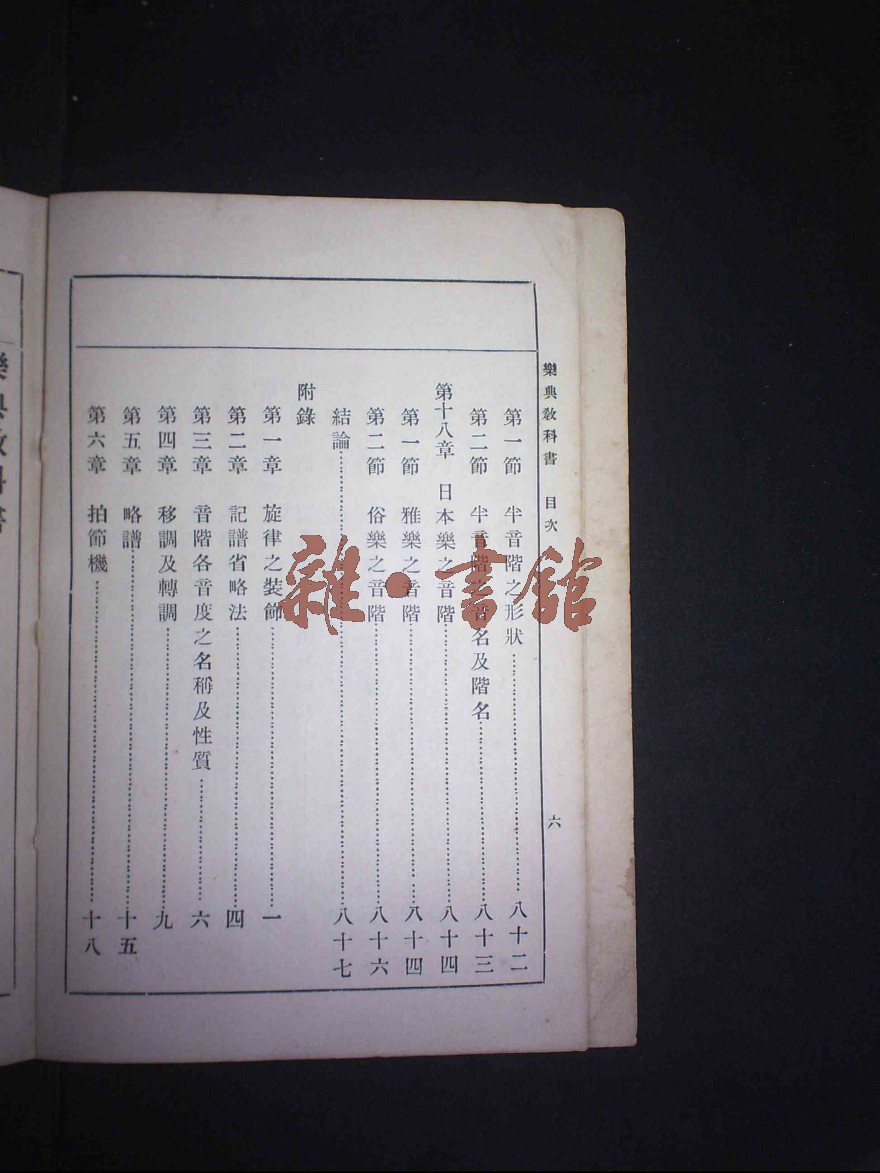 樂典教科書 目次 六
第一節 半音階之形狀……八十二
第二節 半音階之音名及階名……八十三
第十八章 日本樂之音階……八十四
第一節 雅樂之音階……八十四
第二節 俗樂之音階……八十六
結論……八十七
附錄
第一章 旋律之裝飾……一
第二章 記譜省略法……四
第三章 音階各音度之名稱及性質……六
第四章 移調及轉調……九
第五章 略譜……十五
第六章 拍節機……十八
樂典教科書
雜·書館